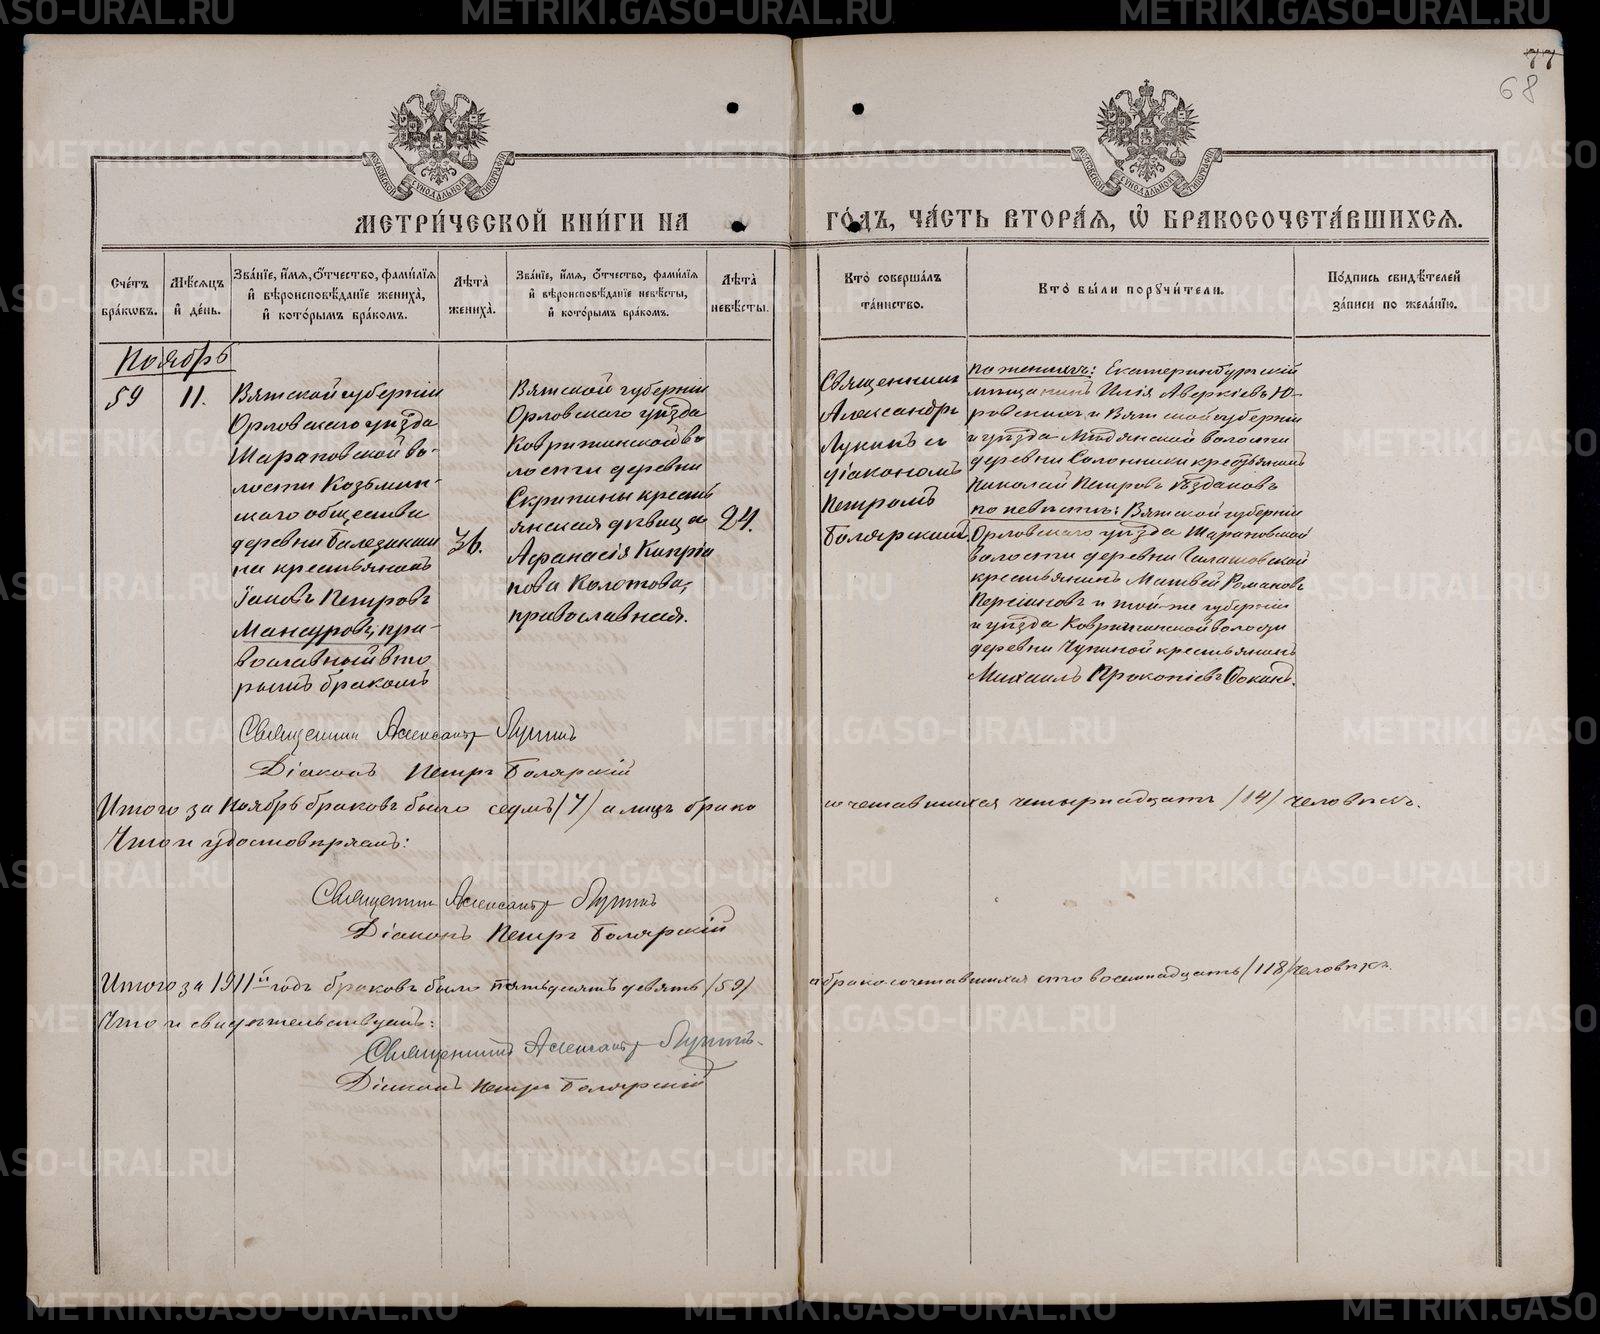 77
68
МЕТРИ́ЧЕСКОЙ КНИ́ГИ НА
ГО́ДЪ, ЧА́СТЬ ВТОРА́Я, Ѡ҆ БРАКОСОЧЕТА́ВШИХСЯ.
Сче́тъ бра́ковъ.
Мѣ́сяцъ и҆ де́нь.
Зва́нїе, и҆́мя, ѻ҆́тчество, фами́лїя и҆ вѣроисповѣ́данїе жениха̀, и҆ кото́рымъ бра́комъ.
Лѣ́та жениха̀.
Зва́нїе, и҆́мя, ѻ҆́тчество, фами́лїя и҆ вѣроисповѣ́данїе невѣ́сты, и҆ кото́рымъ бра́комъ.
Лѣ́та невѣ́сты.
Кто̀ соверша́лъ та́инство.
Кто̀ бы́ли порꙋчи́тели.
По́дпись свидѣ́телей за́писи по жела́нїю.
Ноябрь
59
11.
Вятской губерніи
Орловскаго уѣзда
Шараповской во-
лости Козьмин-
скаго общества
деревни
крестьянинъ
Іаковъ Петровъ
Мансуровъ, пра-
вославный вто
рымъ бракомъ
36.
Вятской губерніи
Орловскаго уѣзда
Ковритинской во
лости деревни
Скрипины кресть
янская дѣвица
Афанасія Кипріа
нова Колотова,
православная.
24.
Священникъ
Александръ
Лукинъ съ
діакономъ
Петромъ
Болярскимъ.
По женихѣ: Екатеринбургскій
мѣщанинъ Илія Аверкіевъ Ю-
ровскихъ и Вятской губерніи
и уѣзда волости
деревни крестьянинъ
Николай Петровъ
по невѣстѣ: Вятской губерніи
Орловскаго уѣзда Шараповской
волости деревни
крестьянинъ Матвей Романовъ
и той-же губерніи
и уѣзда Ковритинской волости
деревни Чупиной крестьянинъ
Михаилъ Прокопіевъ
Священникъ Александръ Лукинъ
Діаконъ Петръ Болярскій
Итого за Ноябрь браковъ было седмь (7) а лицъ брако
сочетавшихся четырнадцать (14) человѣкъ.
Что и удостовѣряемъ:
Священникъ Александръ Лукинъ
Діаконъ Петръ Болярскій
Итого за 1911й годъ браковъ было пятьдесятъ девять (59)
а бракосочетавшихся сто восемнадцать (118) человѣкъ.
Что и свидѣтельствуемъ:
Священникъ Александръ Лукинъ
Діаконъ Петръ Болярскій
METRIKI.GASO-URAL.RU